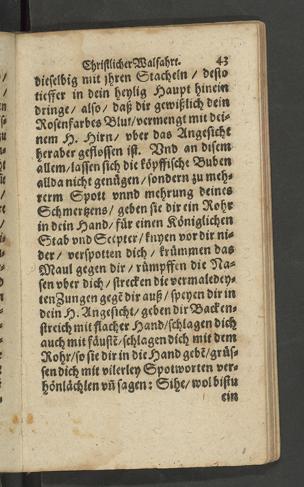 Christlicher Walfahrt. 43
dieselbig mit jhren Stacheln / desto
tieffer in dein heylig Haupt hinein
dringe / also / daß dir gewißlich dein
Rosenfarbes Blut / vermengt mit dei-
nem H. Hirn / vber das Angesicht
heraber geflossen ist. Vnd an disem
allem / lassen sich die köpffische Buben
allda nicht genügen / sondern zu meh-
rerm Spott vnnd mehrung deines
Schmertzens / geben sie dir ein Rohr
in dein Hand / für einen Königlichen
Stab vnd Scepter / knyen vor dir ni-
der / verspotten dich / krümmen das
Maul gegen dir / rümpffen die Na-
sen vber dich / strecken die vermaledey-
ten Zungen gegē dir auß / speyen dir in
dein H. Angesicht / geben dir Backen-
streich mit flacher Hand / schlagen dich
auch mit fäustē / schlagen dich mit dem
Rohr / so sie dir in die Hand gebē / grüs-
sen dich mit vilerley Spotworten ver-
hönlächlen vn̄ sagen: Sihe / wol bistu
ein